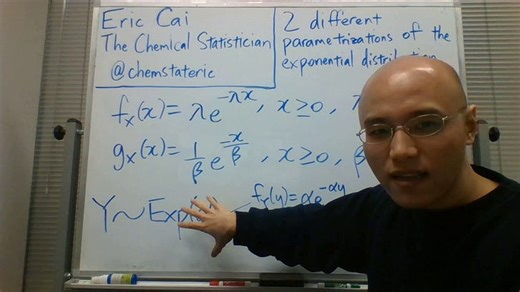 Eric Cai
The Chemical Statistician
@chemstateric
2 different
parametrizations of the
exponential distribution
fₓ(x) = λe^(-λx), x ≥ 0,
gₓ(x) = 1/β e^(-x/β), x ≥ 0, β
Y ~ Exp
f_Y(y) = αe^(-αy)